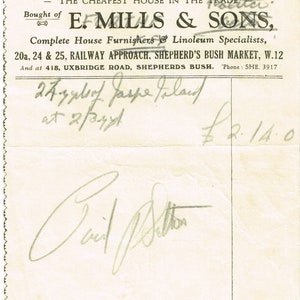 THE CHEAPEST HOUSE IN THE TRADE
Bought of E. MILLS & SONS,
Complete House Furnishers & Linoleum Specialists,
20a, 24 & 25, RAILWAY APPROACH, SHEPHERD'S BUSH MARKET, W.12
And at 418, UXBRIDGE ROAD, SHEPHERDS BUSH. Phone: SHE. 3917
of Jaspe Inland
at 2/3 yd
£2.14.0
Paid